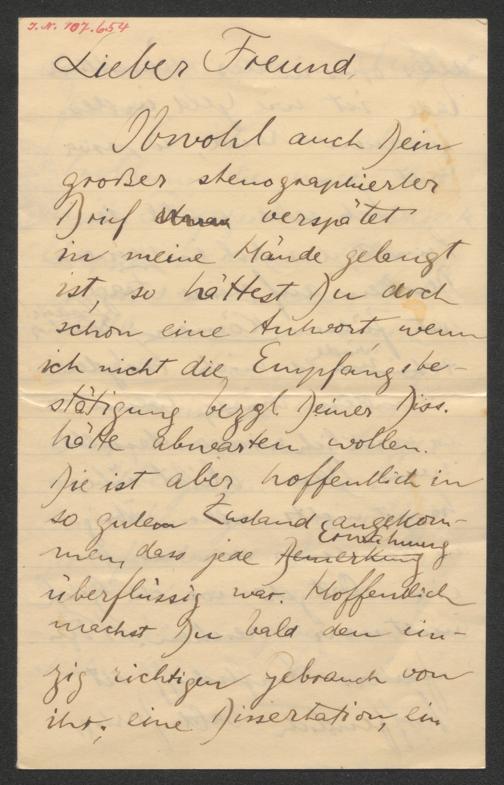 J.N. 107.654
Lieber Freund,
Obwohl auch Dein
großer stenographierter
Brief etwas verspätet
in meine Hände gelangt
ist, so hättest Du doch
schon eine Antwort, wenn
ich nicht die Empfangsbe-
stätigung bezgl Deiner Diss.
hätte abwarten wollen.
Sie ist aber hoffentlich in
so gutem Zustand angekom-
Erwähnung
men, dass jede Bemerkung
überflüssig war. Hoffentlich
machst Du bald den ein-
zig richtigen Gebrauch von
ihr; eine Dissertation, ein